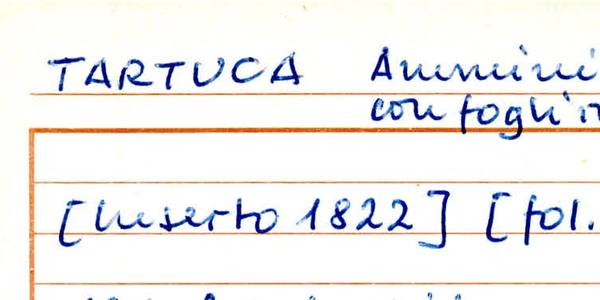 TARTUCA Ammini
con fogli
[Inserto 1822] [fol.